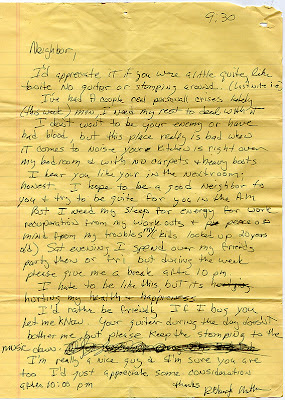 9.30
Neighbor,
I'd appreciate it if you were a little quite, like
No guitar or stomping around.
I've had a couple real personal crises lately
(this week) man, I need my rest to deal with it
I don't want to be your enemy or have
bad blood but this place really is bad when
it comes to noise your kitchen is right over
my bedroom & with no carpets & heavy boots
I hear you like your in the next room;
honest. I hope to be a good neighbor to
you & try to be quite for you in the AM
But I need my sleep for energy for work
recuperation from my workouts & peace
mind from my troubles my kids locked up 20 years
old) Sat evening I spend over my friends
party then or fri but during the week
please give me a break after 10 pm
I hate to be like this but its
hurting my health & happiness
I'd rather be friends If I bug you
let me know. Your guitar during the day doesn't
bother me, but please keep the stomping to the
music down.
I'm really a nice guy & I'm sure you are
too I'd just appreciate some consideration
after 10:00 pm thanks